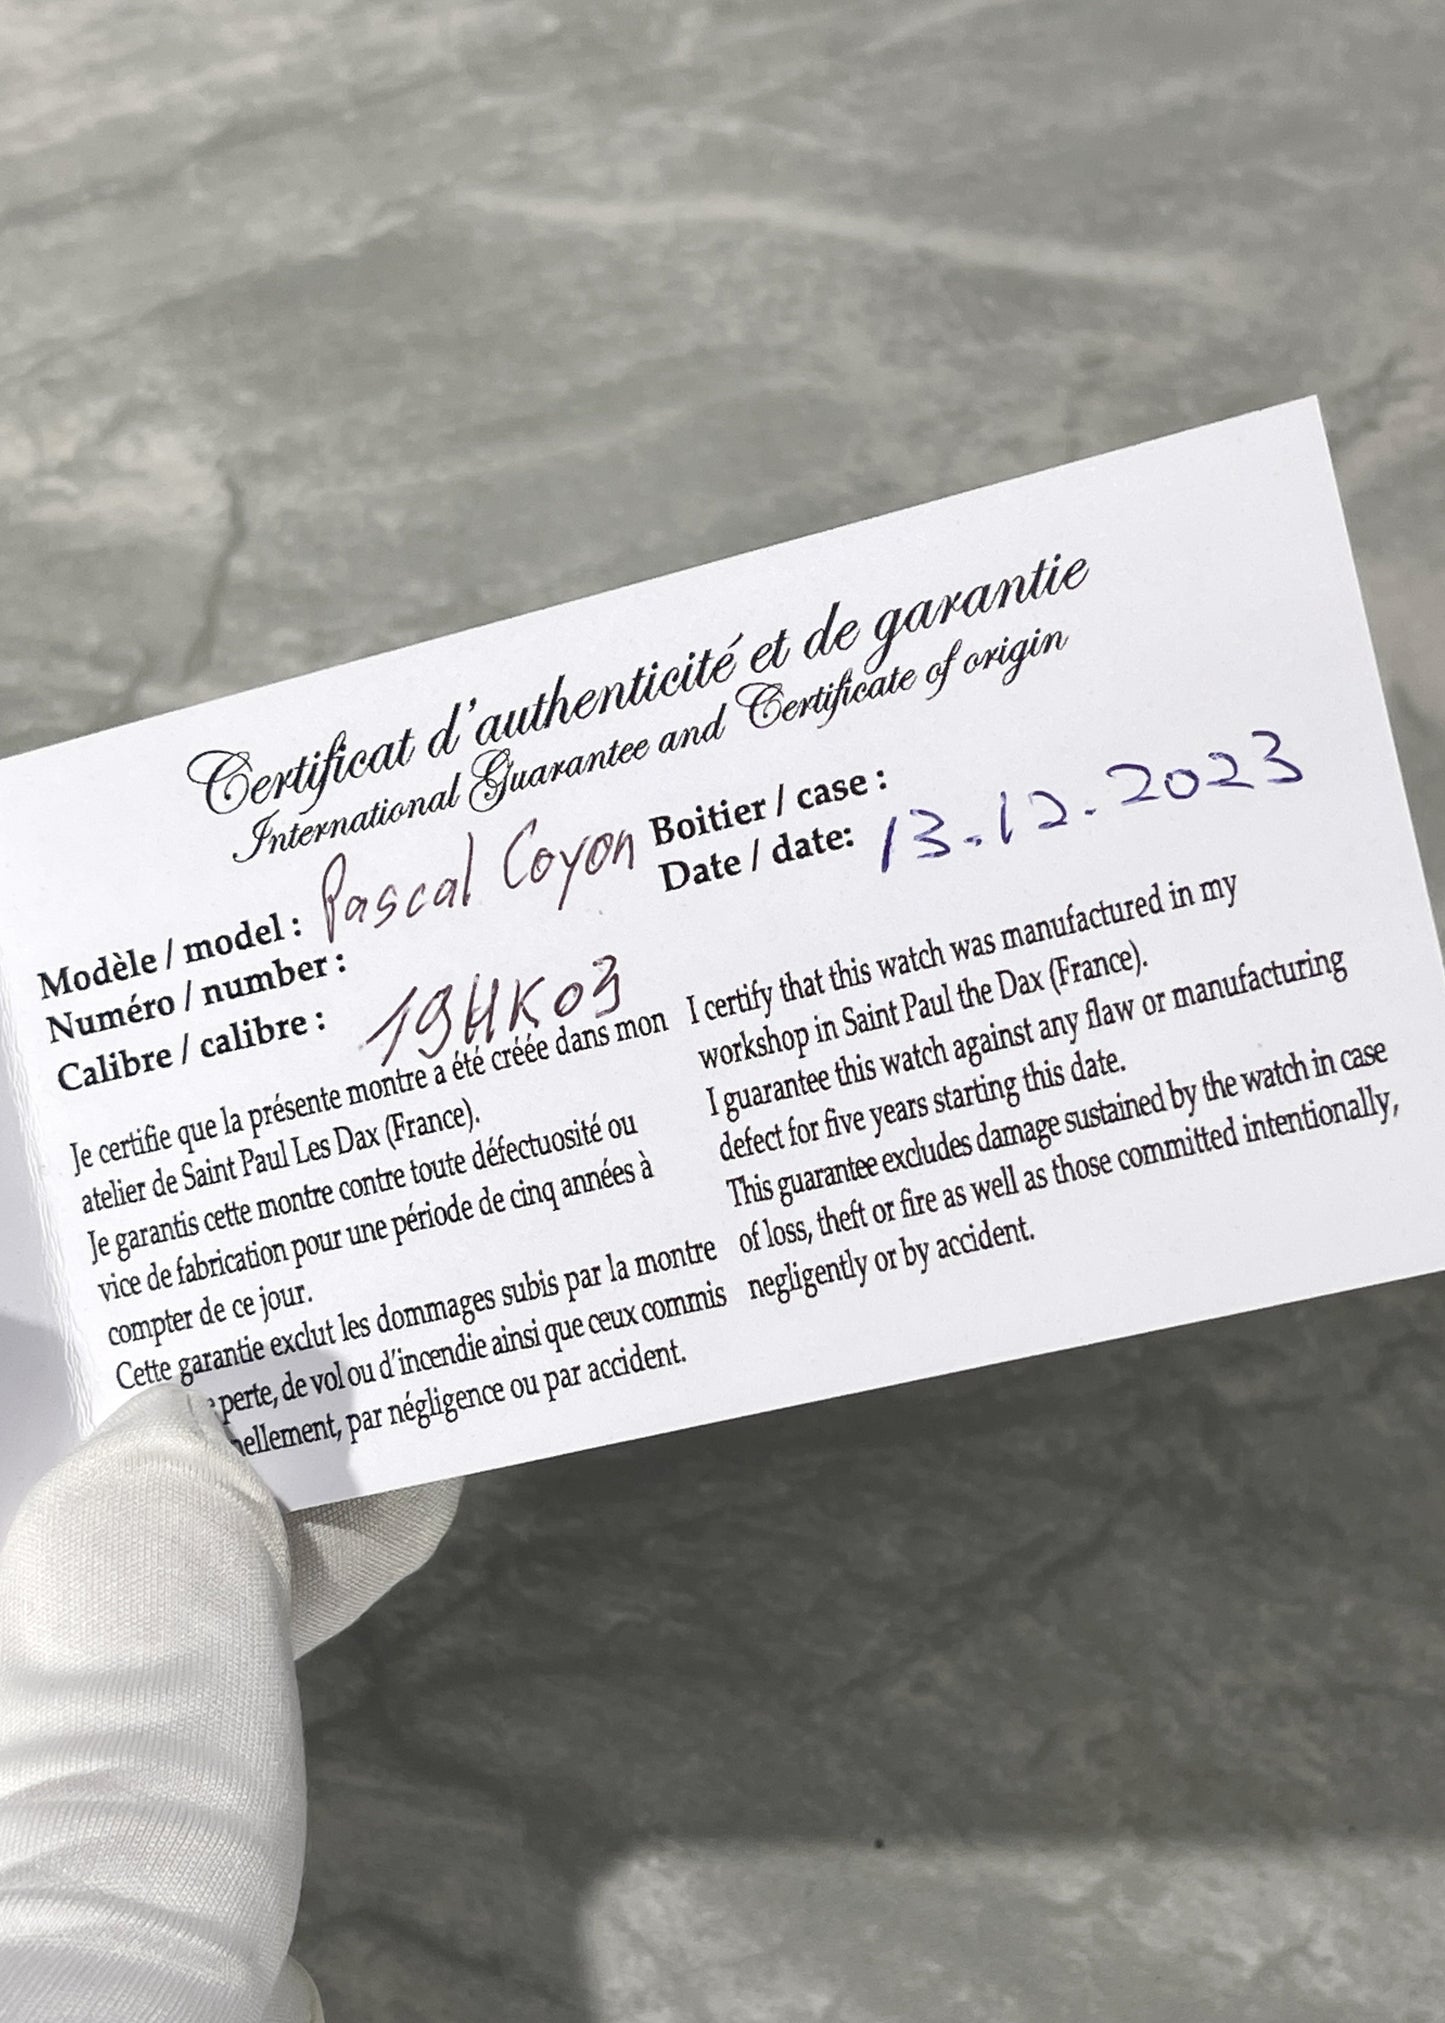 Certificat d'authenticité et de garantie
International Guarantee and Certificate of origin
Modèle / model : Pascal Coyon
Numéro / number :
Calibre / calibre : 19HK03
Boitier / case :
Date / date: 13.12.2023
Je certifie que la présente montre a été créée dans mon
atelier de Saint Paul Les Dax (France).
Je garantis cette montre contre toute défectuosité ou
vice de fabrication pour une période de cinq années à
compter de ce jour.
Cette garantie exclut les dommages subis par la montre
perte, de vol ou d'incendie ainsi que ceux commis
nellement, par négligence ou par accident.
I certify that this watch was manufactured in my
workshop in Saint Paul the Dax (France).
I guarantee this watch against any flaw or manufacturing
defect for five years starting this date.
This guarantee excludes damage sustained by the watch in case
of loss, theft or fire as well as those committed intentionally,
negligently or by accident.